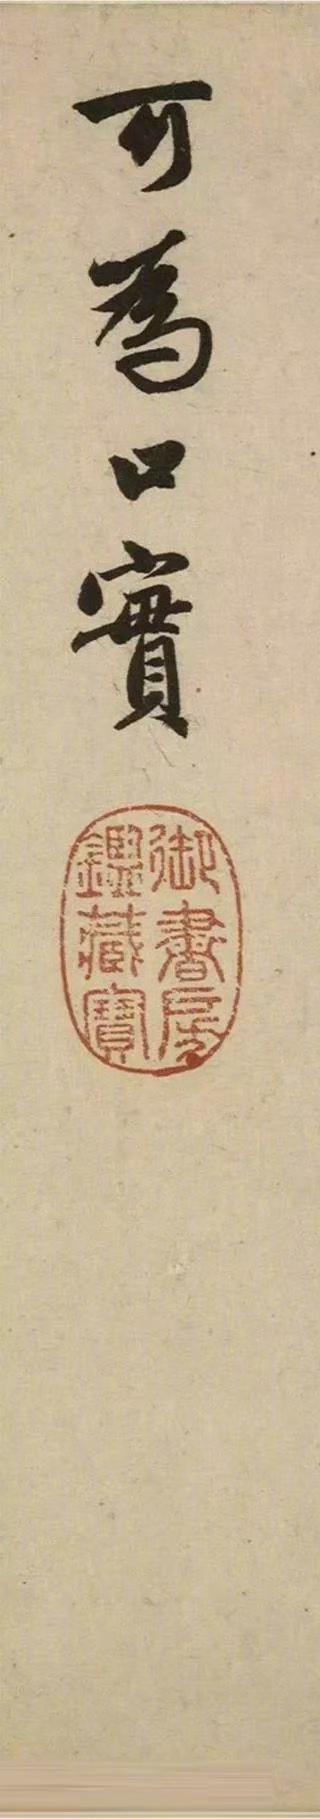 可為口實
御書房
鑑藏寶